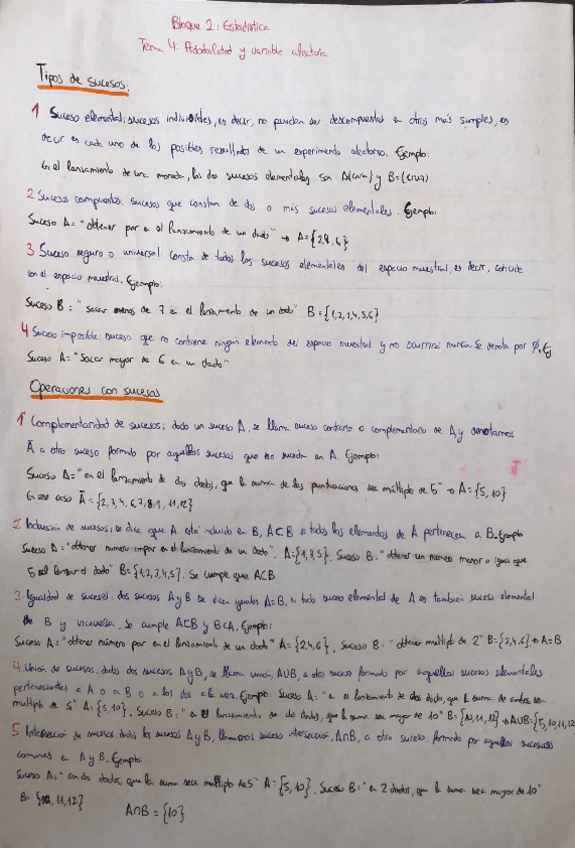 Bloque 2: Estadística
Tema 4: Probabilidad y variable aleatoria
Tipos de sucesos:
1 Suceso elemental: sucesos individuales, es decir, no pueden ser descompuestos en otros más simples, es
decir es cada uno de los posibles resultados de un experimento aleatorio. Ejemplo:
En el lanzamiento de una moneda, los dos sucesos elementales son A=(cara) y B=(cruz)
2 Sucesos compuestos: sucesos que constan de dos o más sucesos elementales. Ejemplo:
Suceso A="obtener par en el lanzamiento de un dado" → A={2,4,6}
3 Suceso seguro o universal: consta de todos los sucesos elementales del espacio muestral, es decir, coincide
con el espacio muestral. Ejemplo:
Suceso B: "sacar menos de 7 en el lanzamiento de un dado" B={1,2,3,4,5,6}
4 Suceso imposible: suceso que no contiene ningún elemento del espacio muestral y no ocurrirá nunca. Se denota por ∅. Ej
Suceso A="Sacar mayor de 6 en un dado"
Operaciones con sucesos
1 Complementariedad de sucesos: dado un suceso A, se llama suceso contrario o complementario de A, y denotamos
Ā a otro suceso formado por aquellos sucesos que no suceden en A. Ejemplo:
Suceso A="en el lanzamiento de dos dados, que la suma de las puntuaciones sea múltiplo de 5" → A={5,10}
En ese caso Ā={2,3,4,6,7,8,9,11,12}
2 Inclusión de sucesos: se dice que A está incluido en B, A⊂B si todos los elementos de A pertenecen a B. Ejemplo
Suceso A="obtener numero impar en el lanzamiento de un dado". A={1,3,5}. Suceso B="obtener un número menor o igual que
5 al lanzar el dado" B={1,2,3,4,5}. Se cumple que A⊂B
3. Igualdad de sucesos: dos sucesos A y B se dicen iguales A=B, si todo suceso elemental de A es también suceso elemental
de B y viceversa, se cumple A⊂B y B⊂A. Ejemplo:
Suceso A="obtener número par en el lanzamiento de un dado" A={2,4,6}, Suceso B="obtener multiplo de 2" B={2,4,6} → A=B
4 Unión de sucesos: dados dos sucesos A y B, se llama unión, A∪B, a otro suceso formado por aquellos sucesos elementales
pertenecientes a A o a B o a los dos a la vez. Ejemplo: Suceso A="en el lanzamiento de dos dados, que la suma de ambos sea
multiplo de 5" A={5,10}. Suceso B="en el lanzamiento de dos dados, que la suma sea mayor de 10" B={10,11,12} → A∪B={5,10,11,12
5 Intersección de sucesos: dados los sucesos A y B, llamamos suceso intersección, A∩B, a otro suceso formado por aquellos sucesos
comunes en A y B. Ejemplo:
Suceso A="con dos dados, que la suma sea multiplo de 5" A={5,10}. Suceso B="en 2 dados, que la suma sea mayor de 10"
B={10,11,12} A∩B={10}